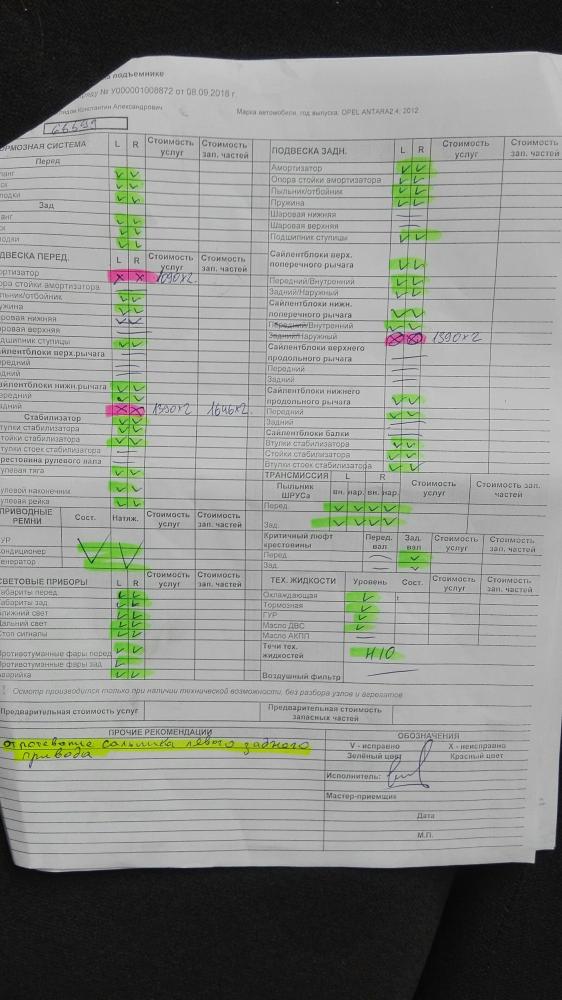 подъемнике
№ У000001008872 от 08.09.2018 г.
Константин Александрович
Марка автомобиля, год выпуска: OPEL ANTARA2.4; 2012
ОРМОЗНАЯ СИСТЕМА L R Стоимость услуг Стоимость зап. частей
Перед
ланг
ск
лодки
Зад
анг
ск
лодки
ДВЕСКА ПЕРЕД. L R Стоимость услуг Стоимость зап. частей
ортизатор X X 1690x2
ора стойки амортизатора
льник/отбойник
ужина
ровая нижняя
ровая верхняя
дшипник ступицы
айлентблоки верх.рычага
редний
дний
айлентблоки нижн.рычага
ередний
адний X X 1350x2 1646x2
Стабилизатор
тулки стабилизатора
тойки стабилизатора
тулки стоек стабилизатора
рестовина рулевого вала
улевая тяга
улевой наконечник
улевая рейка
ПРИВОДНЫЕ РЕМНИ Сост. Натяж. Стоимость услуг Стоимость зап. частей
УР
ондиционер
енератор
СВЕТОВЫЕ ПРИБОРЫ L R Стоимость услуг Стоимость зап. частей
абариты перед
абариты зад
лижний свет
альний свет
Стоп сигналы
Противотуманные фары перед
Противотуманные фары зад
Аварийка
ПОДВЕСКА ЗАДН. L R Стоимость услуг Стоимость зап. частей
Амортизатор
Опора стойки амортизатора
Пыльник/отбойник
Пружина
Шаровая нижняя
Шаровая верхняя
Подшипник ступицы
Сайлентблоки верх. поперечного рычага
Передний/Внутренний
Задний/Наружный
Сайлентблоки нижн. поперечного рычага
Передний/Внутренний
Задний/Наружный X X 1390x2
Сайлентблоки верхнего продольного рычага
Передний
Задний
Сайлентблоки нижнего продольного рычага
Передний
Задний
Сайлентблоки балки
Втулки стабилизатора
Стойки стабилизатора
Втулки стоек стабилизатора
ТРАНСМИССИЯ L R Стоимость услуг Стоимость зап. частей
Пыльник ШРУСа вн. нар. вн. нар.
Перед.
Зад.
Критичный люфт крестовины Перед. вал Зад. вал Стоимость услуг Стоимость зап. частей
Перед.
Зад.
ТЕХ. ЖИДКОСТИ Уровень Сост. Стоимость услуг Стоимость зап. частей
Охлаждающая
Тормозная
ГУР
Масло ДВС
Масло АКПП
Течи тех. жидкостей
Воздушный фильтр
Осмотр производился только при наличии технической возможности, без разбора узлов и агрегатов
Предварительная стоимость услуг
Предварительная стоимость запасных частей
ПРОЧИЕ РЕКОМЕНДАЦИИ
отпотевание сальника левого заднего
привода
ОБОЗНАЧЕНИЯ
V - исправно X - неисправно
Зелёный цвет Красный цвет
Исполнитель:
Мастер-приемщик
Дата
М.П.